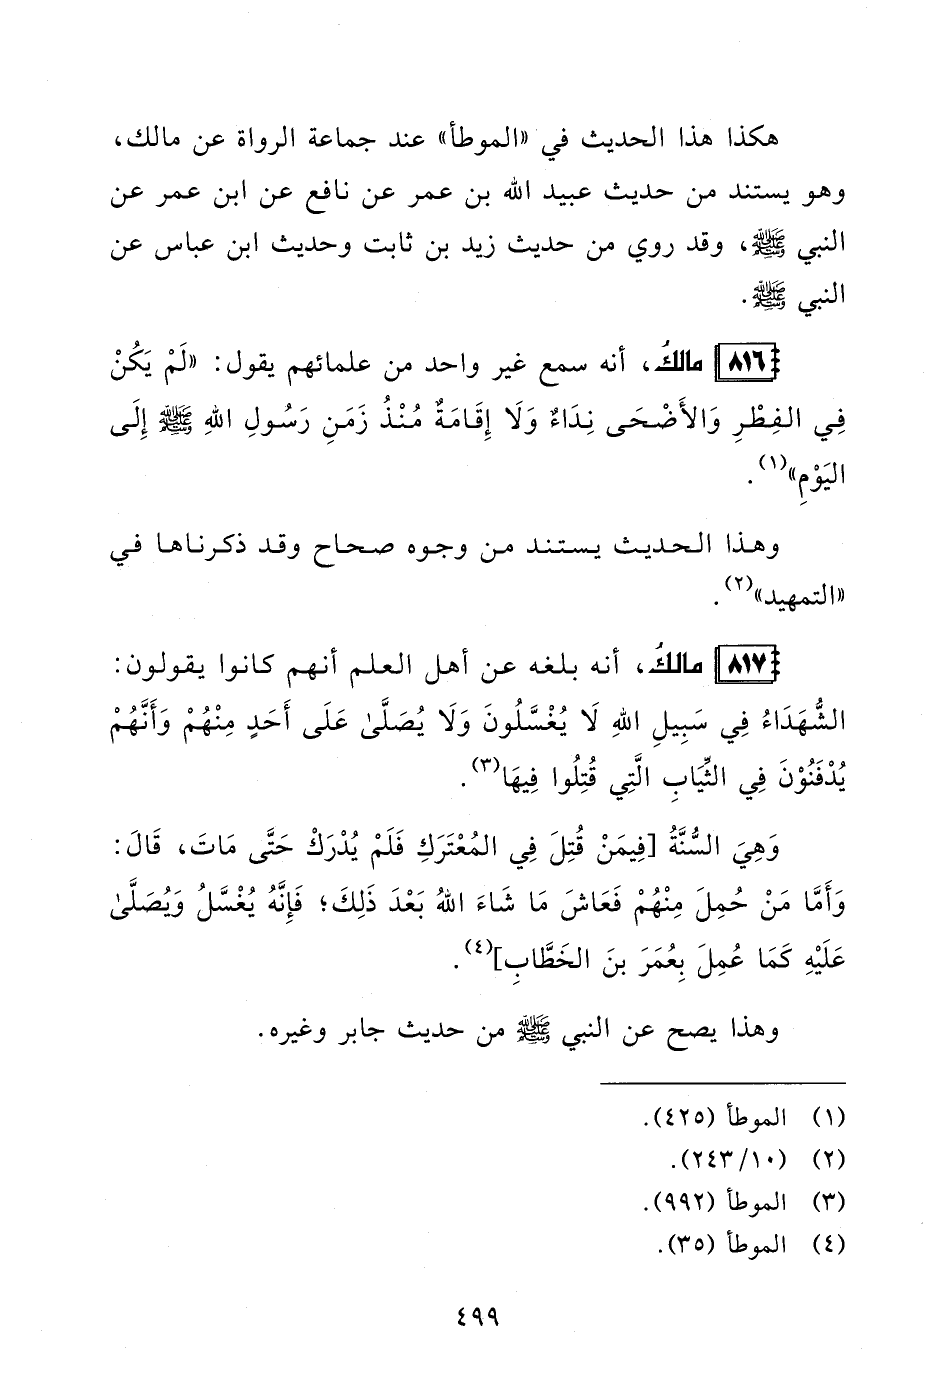 هكذا هذا الحديث في «الموطأ» عند جماعة الرواة عن مالك،
وهو يستند من حديث عبيد الله بن عمر عن نافع عن ابن عمر عن
النبي ﷺ، وقد روي من حديث زيد بن ثابت وحديث ابن عباس عن
النبي ﷺ.
٨١٦ مالكُ، أنه سمع غير واحد من علمائهم يقول: «لَمْ يَكُنْ
فِي الفِطْرِ وَالأَضْحَى نِدَاءٌ وَلَا إِقَامَةٌ مُنْذُ زَمَنِ رَسُولِ اللهِ ﷺ إِلَى
اليَوْمِ»(١).
وهذا الحديث يستند من وجوه صحاح وقد ذكرناها في
«التمهيد»(٢).
٨١٧ مالكُ، أنه بلغه عن أهل العلم أنهم كانوا يقولون:
الشُّهَدَاءُ فِي سَبِيلِ اللهِ لَا يُغَسَّلُونَ وَلَا يُصَلَّىٰ عَلَى أَحَدٍ مِنْهُمْ وَأَنَّهُمْ
يُدْفَنُوْنَ فِي الثِّيَابِ الَّتِي قُتِلُوا فِيهَا(٣).
وَهِيَ السُّنَّةُ [فِيمَنْ قُتِلَ فِي المُعْتَرَكِ فَلَمْ يُدْرَكْ حَتَّى مَاتَ، قَالَ:
وَأَمَّا مَنْ حُمِلَ مِنْهُمْ فَعَاشَ مَا شَاءَ اللهُ بَعْدَ ذَلِكَ؛ فَإِنَّهُ يُغْسَّلُ وَيُصَلَّىٰ
عَلَيْهِ كَمَا عُمِلَ بِعُمَرَ بنَ الخَطَّابِ](٤).
وهذا يصح عن النبي ﷺ من حديث جابر وغيره.
(١) الموطأ (٤٢٥).
(٢) (٢٤٣/١٠).
(٣) الموطأ (٩٩٢).
(٤) الموطأ (٣٥).
٤٩٩